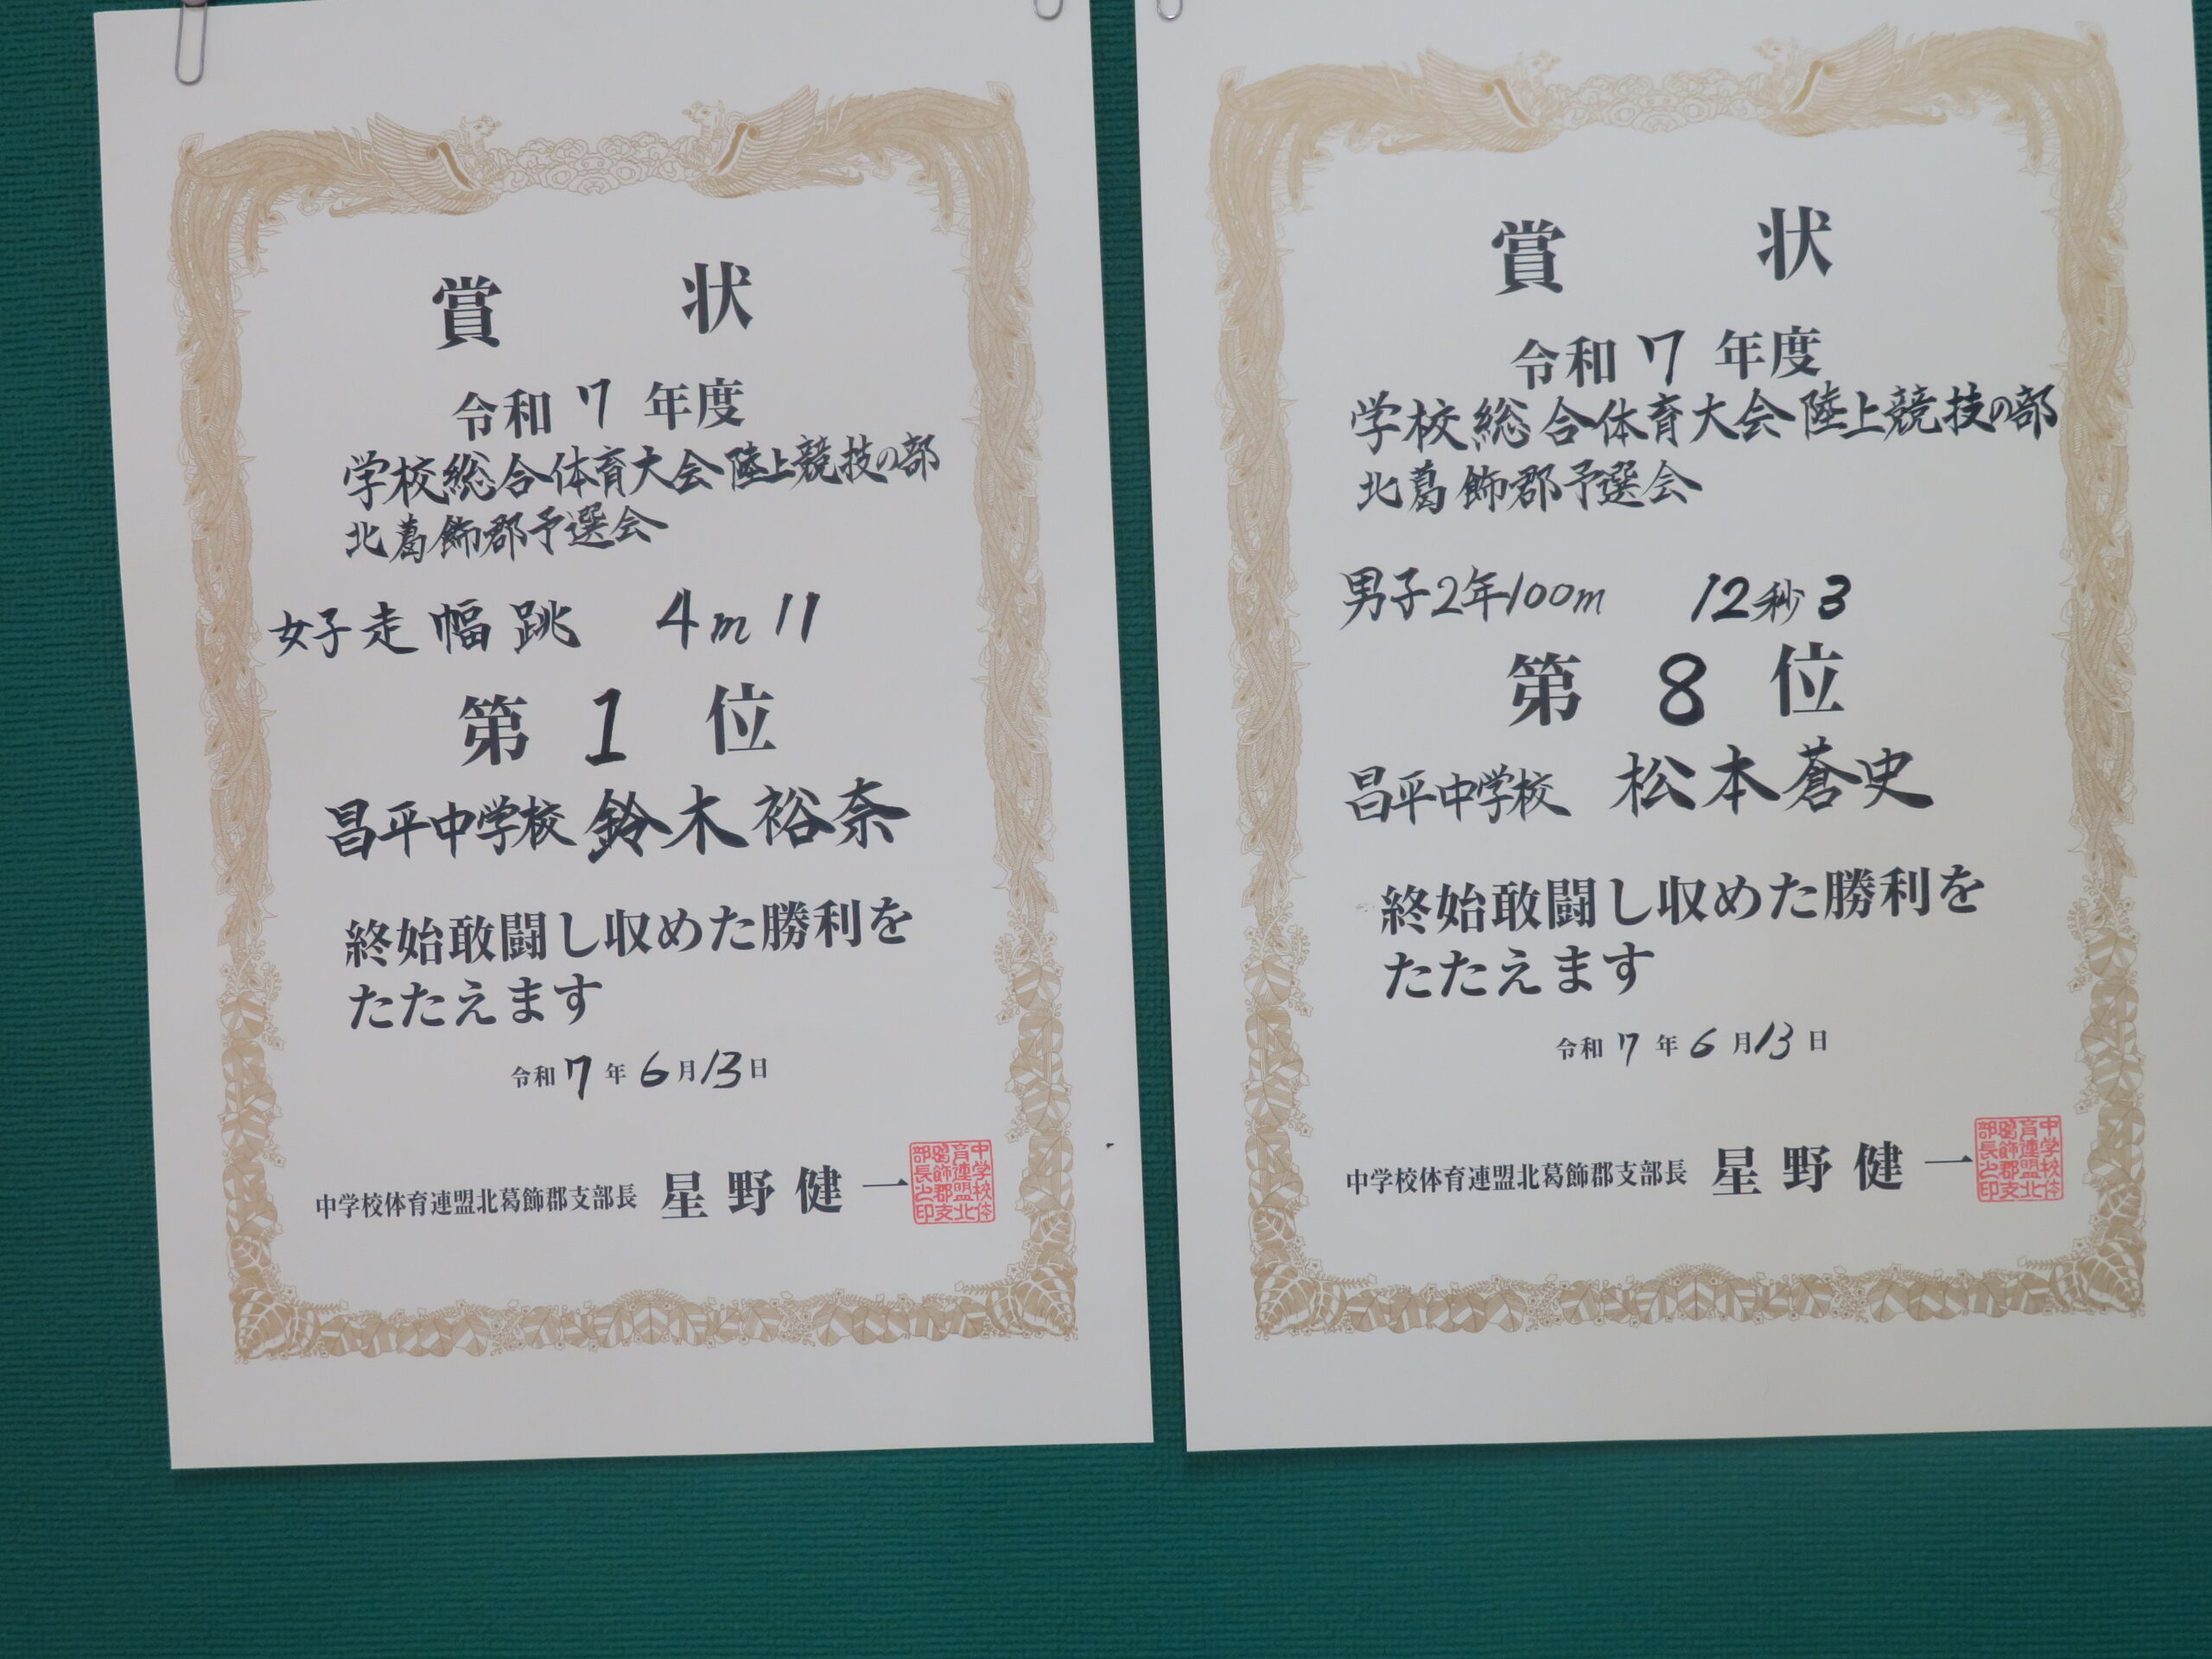 賞 状
令和 7 年度
学校総合体育大会陸上競技の部
北葛飾郡予選会
女子走幅跳 4m11
第 1 位
昌平中学校 鈴木裕奈
終始敢闘し収めた勝利を
たたえます
令和 7 年 6 月 13 日
中学校体育連盟北葛飾郡支部長 星野健一
中学校体
育連盟北
葛飾郡支
部長之印
賞 状
令和 7 年度
学校総合体育大会陸上競技の部
北葛飾郡予選会
男子2年100m 12秒3
第 8 位
昌平中学校 松本蒼史
終始敢闘し収めた勝利を
たたえます
令和 7 年 6 月 13 日
中学校体育連盟北葛飾郡支部長 星野健一
中学校体
育連盟北
葛飾郡支
部長之印